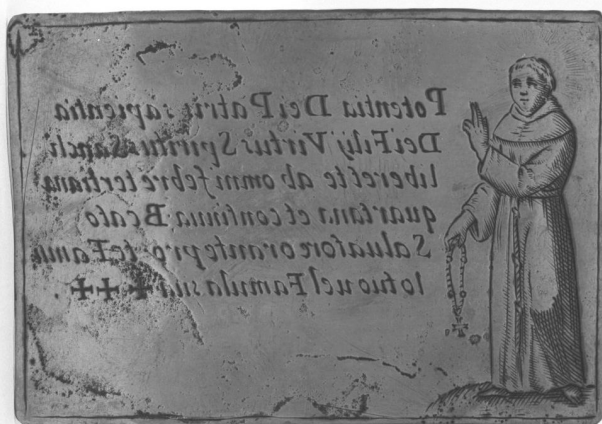 Potentia Dei Patris sapientia
Dei Filij Virtus Spiritus Sancti
liberet te ab omni febre tertiana
quartana et continua Beato
Saluatore orante pro te Famu
lo tuo uel Famula sua +++